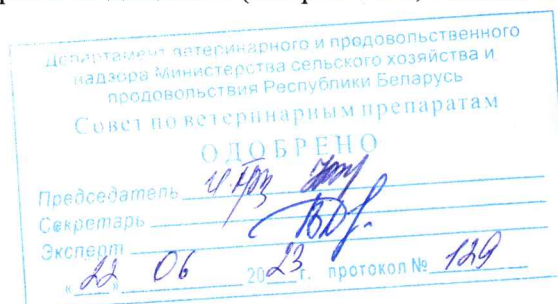 Департамент ветеринарного и продовольственного
надзора Министерства сельского хозяйства и
продовольствия Республики Беларусь
Совет по ветеринарным препаратам
ОДОБРЕНО
Председатель
Секретарь
Эксперт
«22» 06 2023 г. протокол № 129